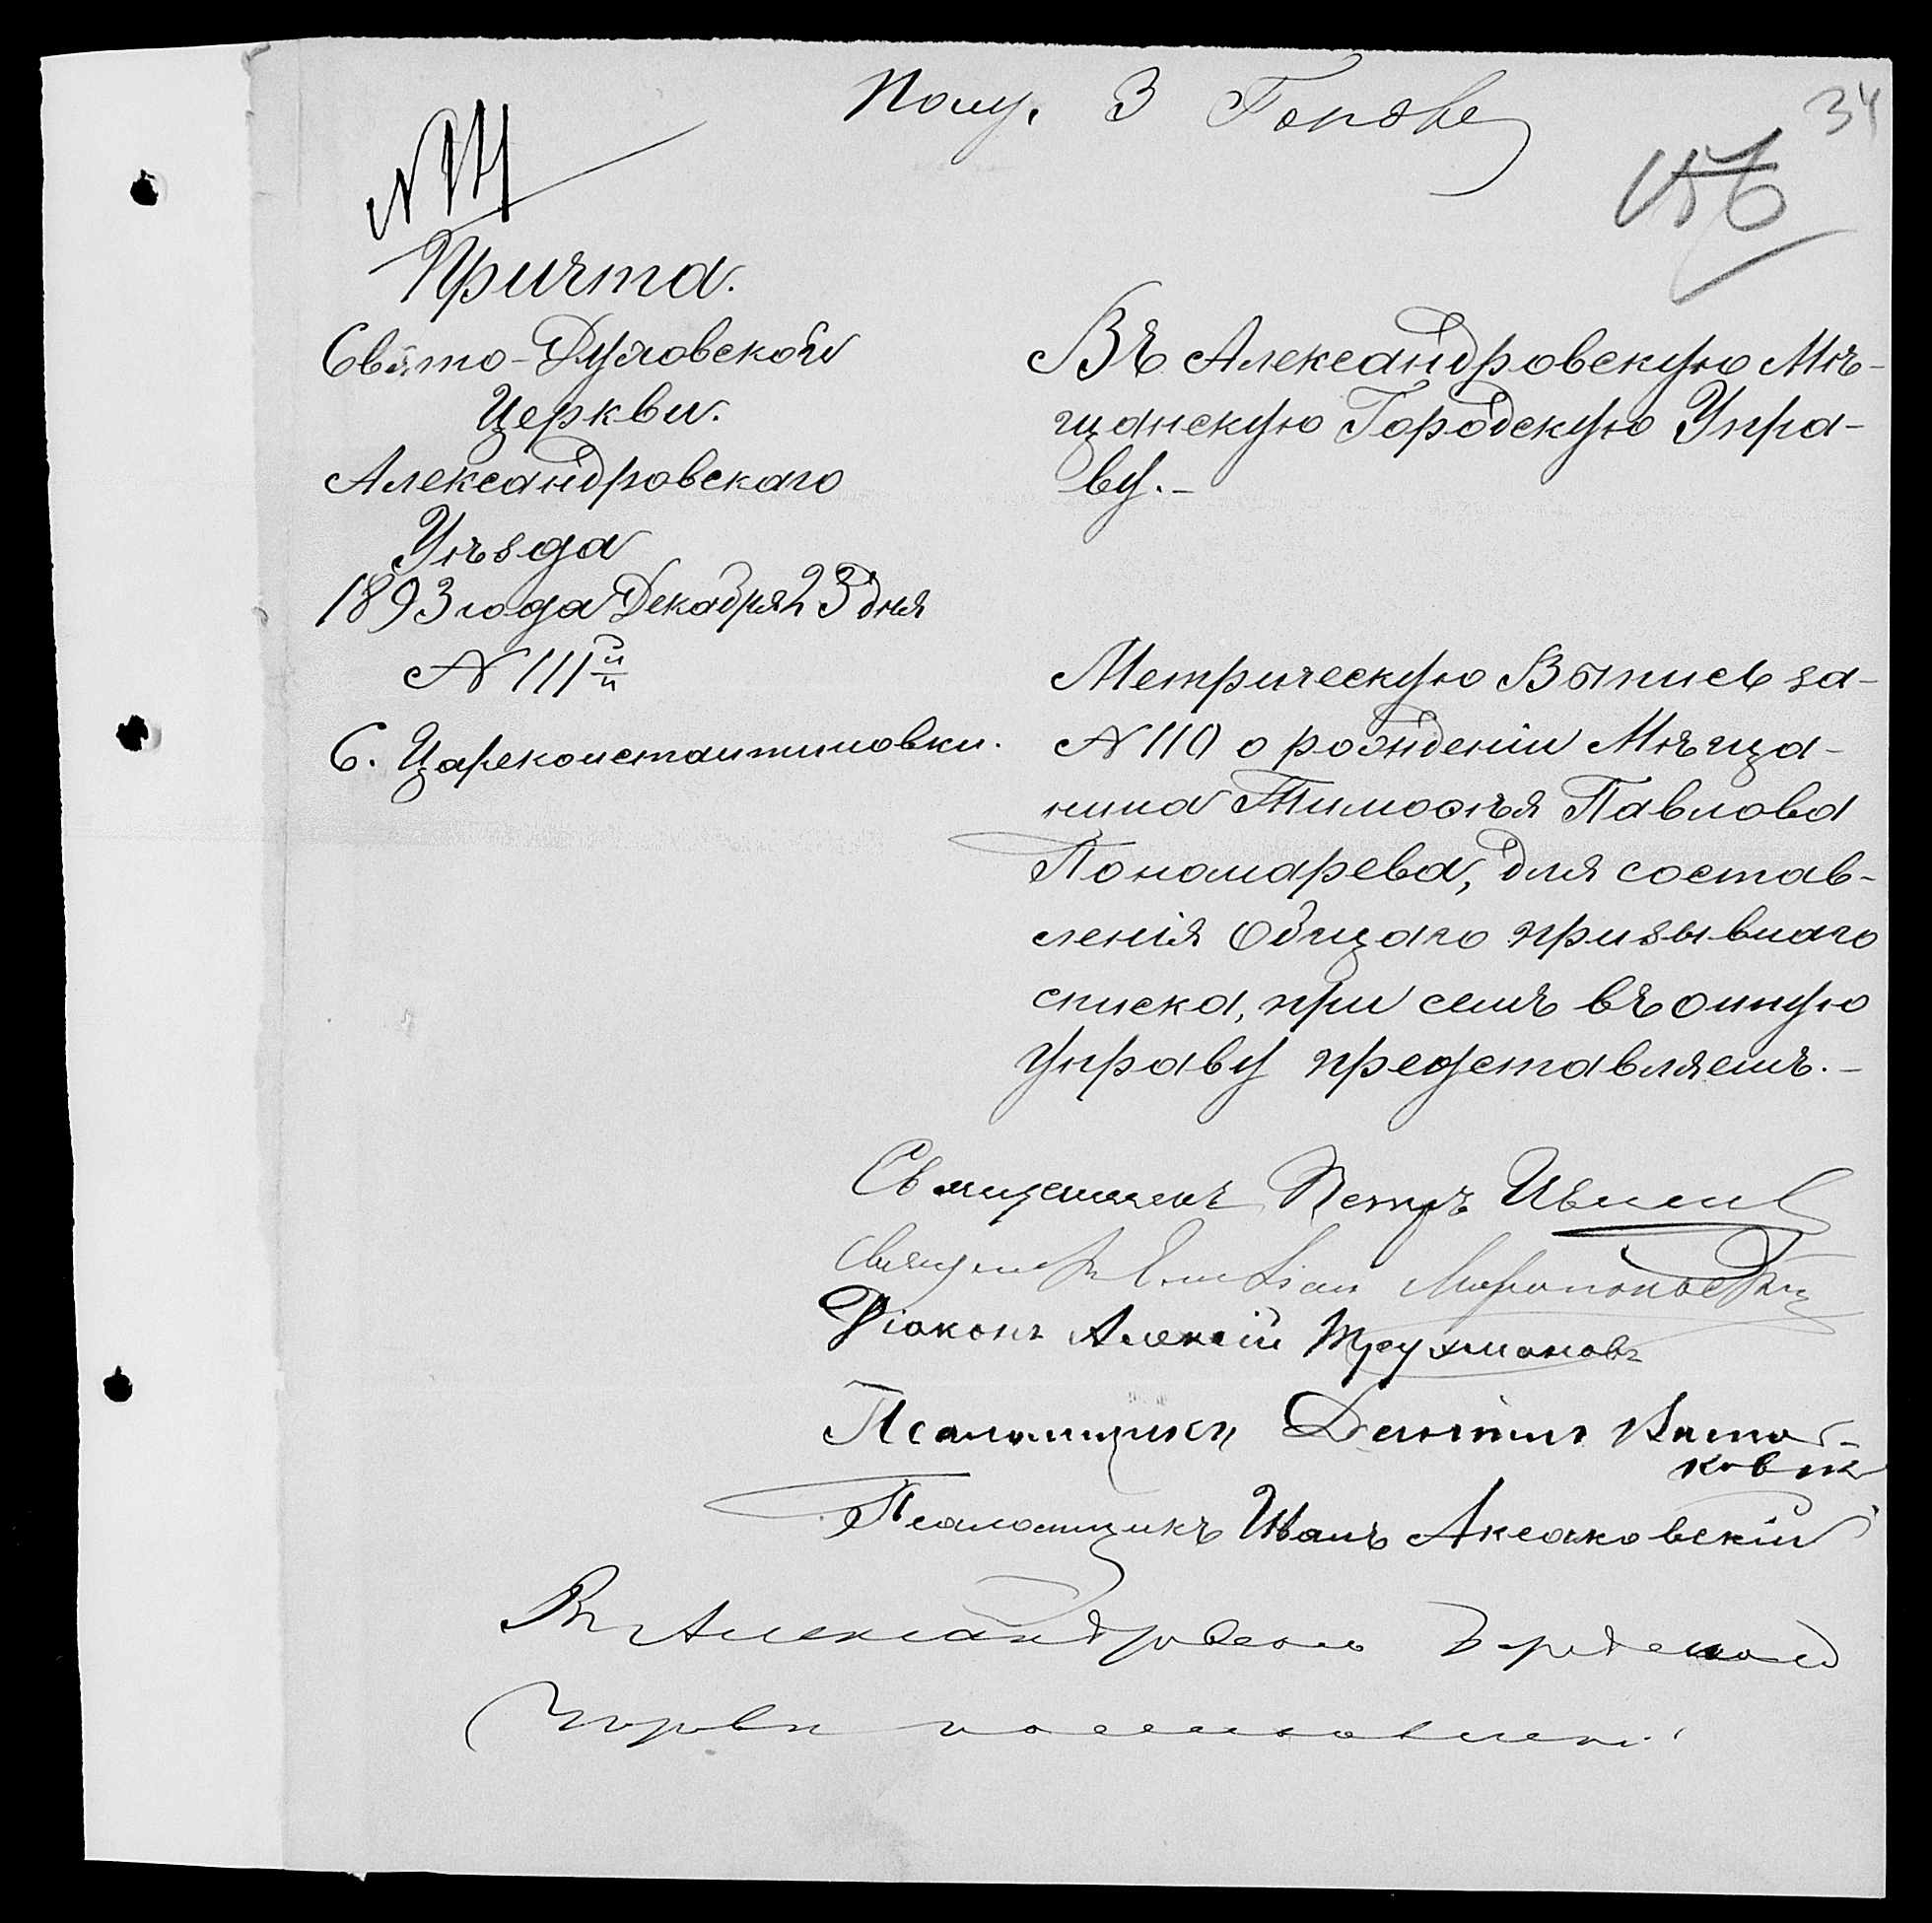 Полу. 3
34
Причта.
Свято-Духовской
Церкви.
Александровскаго
Уѣзда
1893 года Декабря 23 дня
№ 111й
С. Цареконстантиновки.
Въ Александровскую Мѣ-
щанскую Городскую Упра-
ву.-
Метрическую Выпись за-
№ 110 о рожденіи Мѣща-
нина Тимоѳѣя Павлова
Пономарева, для состав-
ленія общаго призывнаго
списка, при семъ въ онную
управу представляемъ.-
Священникъ Петръ
Священникъ
Діаконъ Алексій Трухмановъ
Псаломщикъ
Псаломщикъ Иванъ Аксаковскій
Въ Александровскую